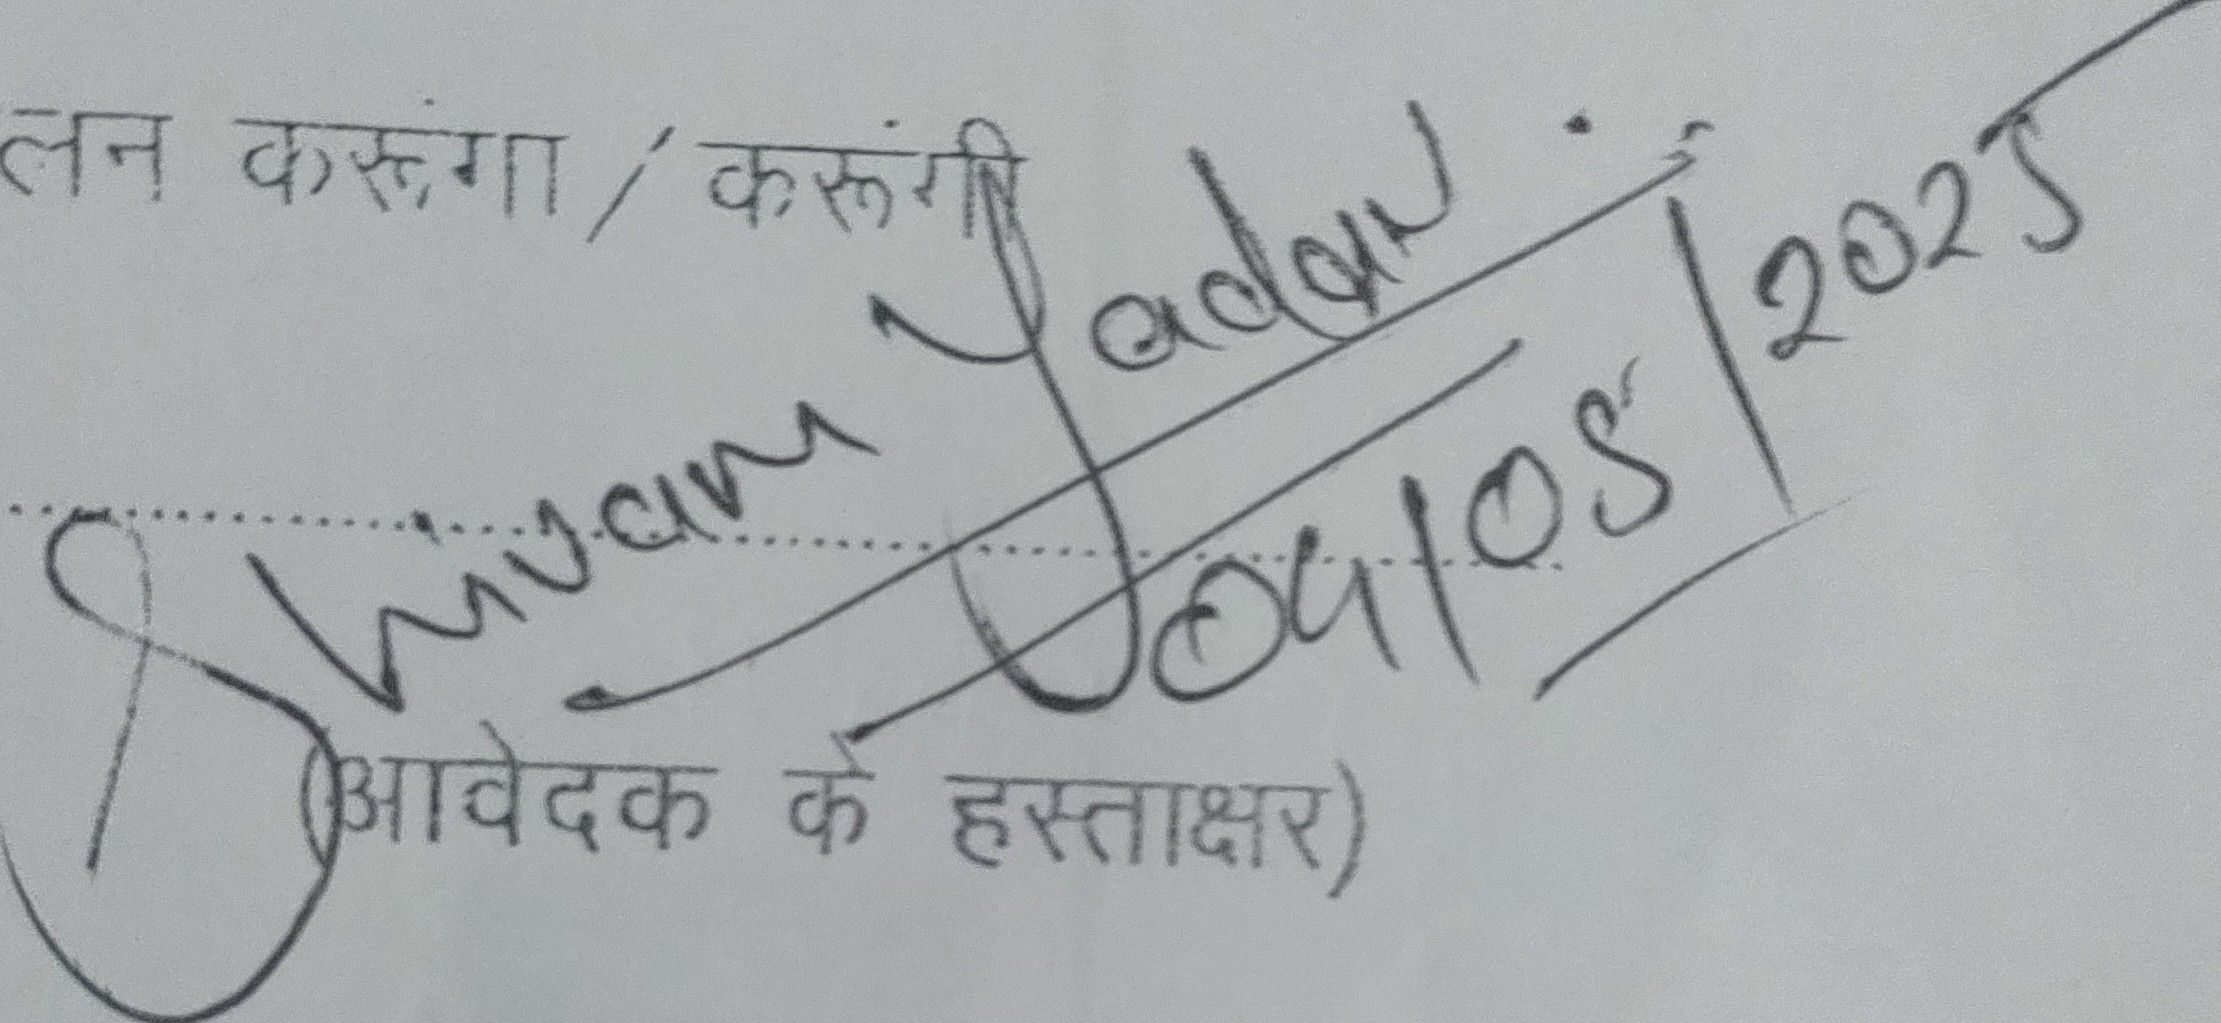 लन करूंगा / करूंगी
Shivam Yadav
04/05/2025
(आवेदक के हस्ताक्षर)